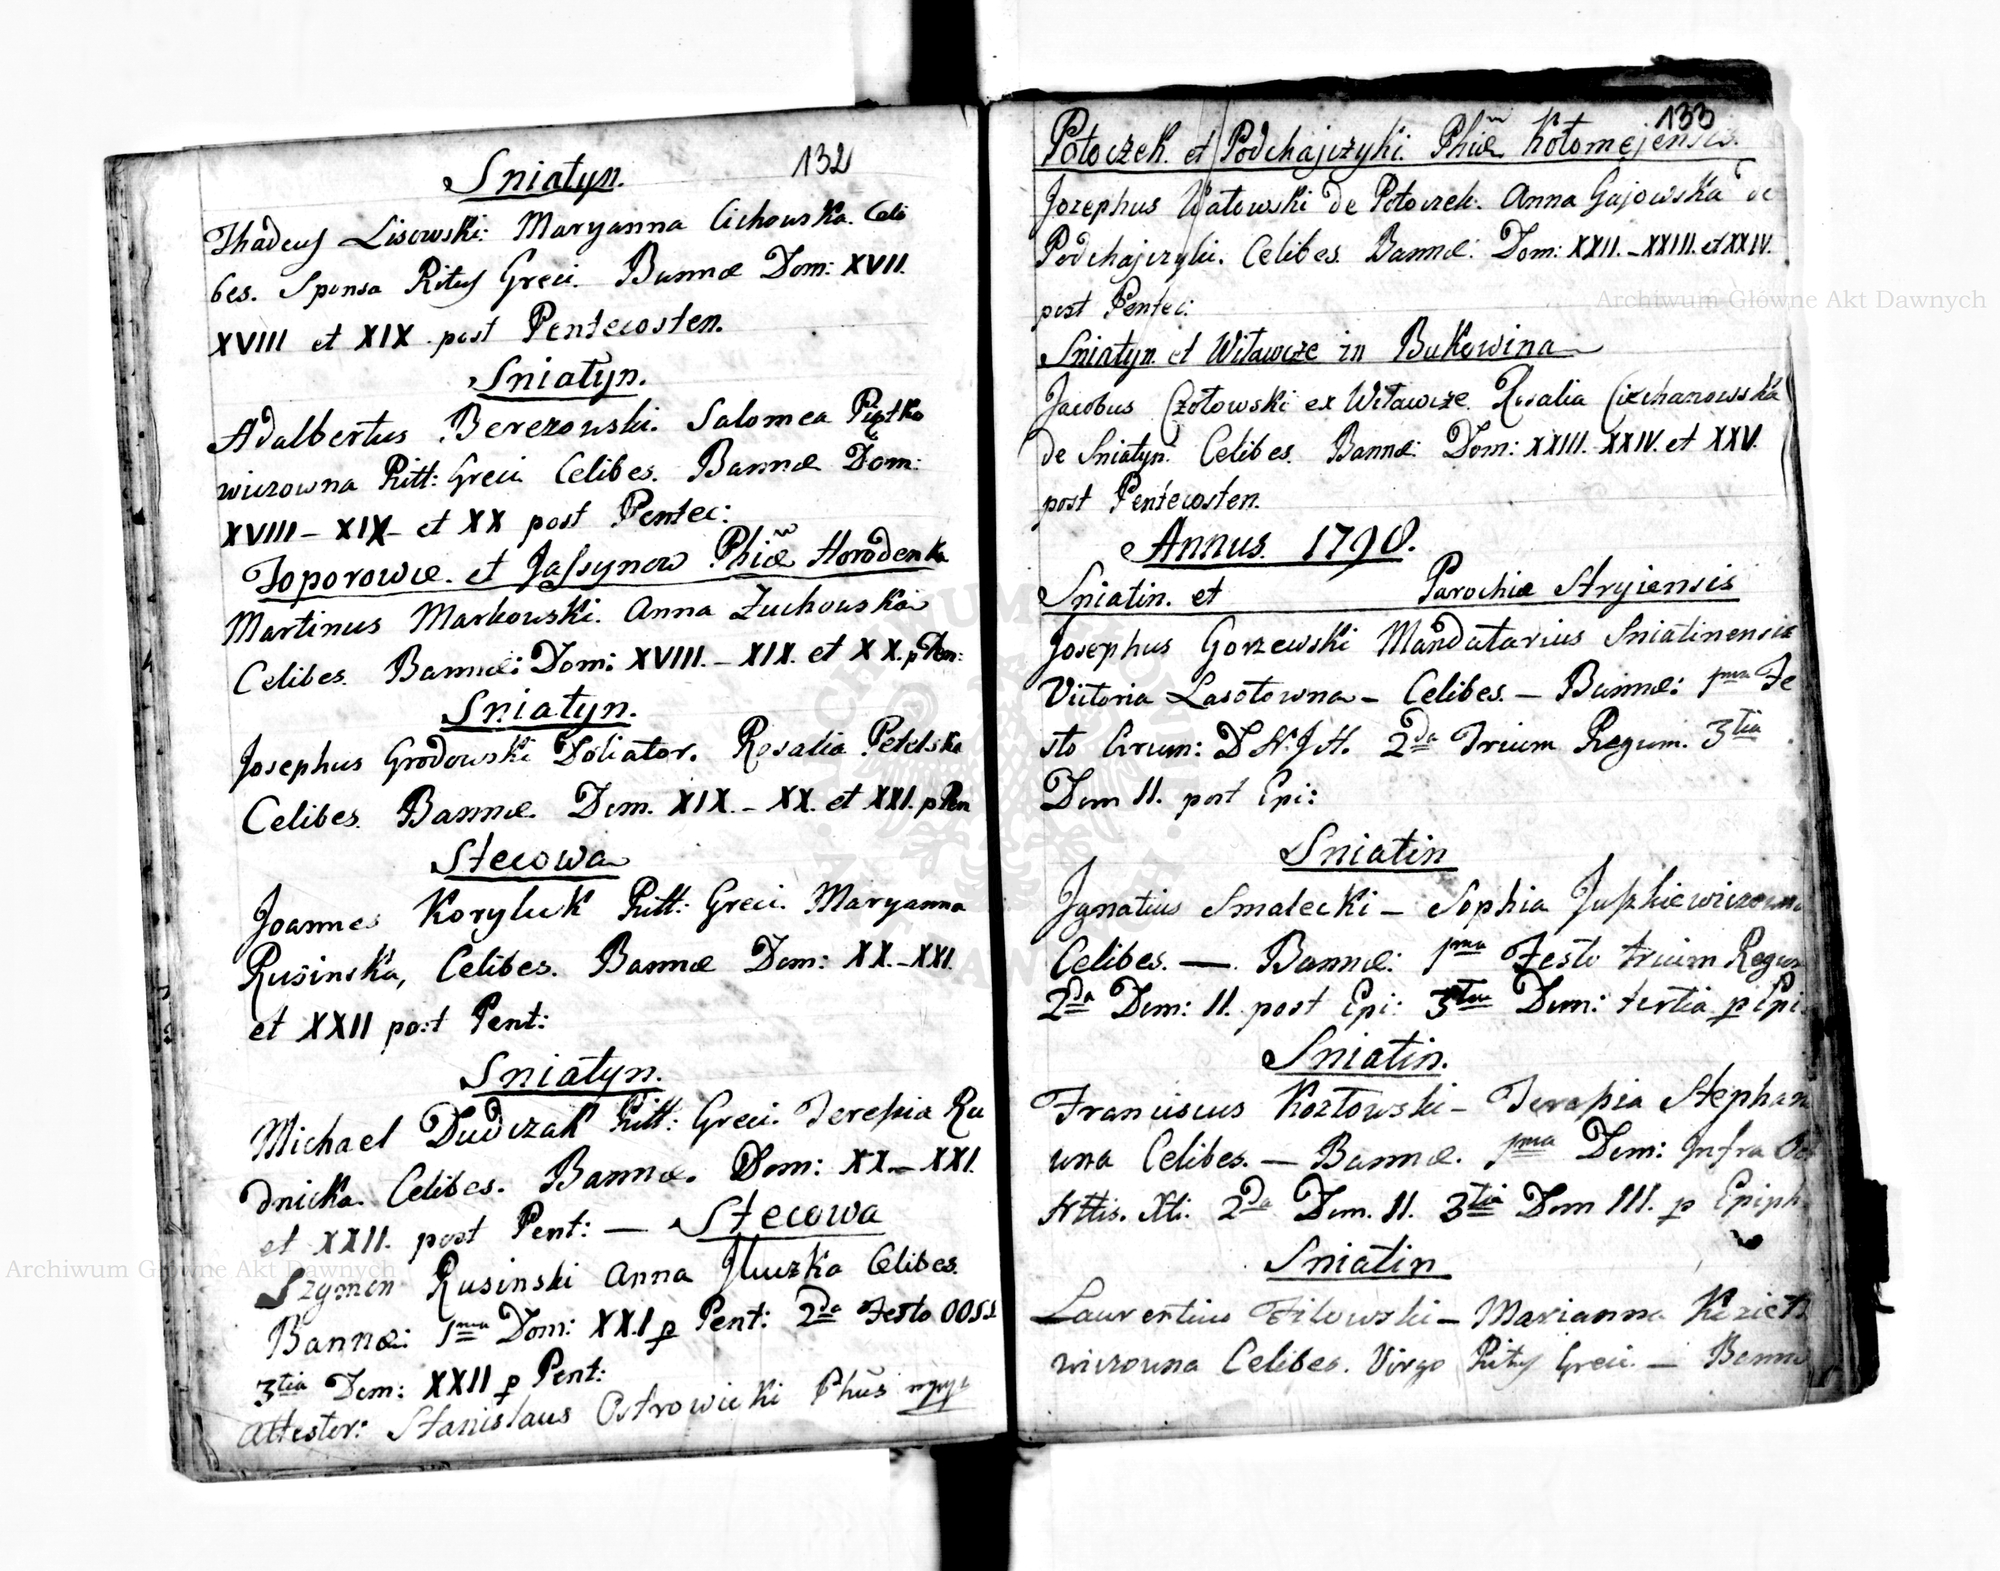 132
Sniatyn.
Thadeus Lisowski. Maryanna Cichowska. Celi
bes. Sponsa Ritus Greci. Bannæ Dom: XVII.
XVIII et XIX post Pentecosten.
Sniatyn.
Adalbertus Berezowski. Salomea Piątka
wiczowna Ritt: Greci Celibes. Bannæ Dom:
XVIII – XIX – et XX post Pentec:
Toporowce. et Jassynow Phiæ Horodenka
Martinus Markowski. Anna Zuchowska
Celibes. Bannæ: Dom: XVIII. – XIX. et XX. p Pen:
Sniatyn.
Josephus Grodowski Doliator. Rosalia Petelska
Celibes. Bannæ. Dom. XIX. – XX. et XXI. p Pen
Stecowa
Joannes Koryluk Ritt: Greci. Maryanna
Rusinska, Celibes. Bannæ Dom: XX. – XXI.
et XXII post Pent:
Sniatyn.
Michael Dudczak Ritt: Greci. Teressia Ru
dnicka. Celibes. Bannæ. Dom: XX – XXI.
et XXII. post Pent: — Stecowa
Szymon Rusinski Anna Celibes.
Bannæ: 1ma Dom: XXI p Pent: 2da Festo OOSS
3tia Dom: XXII p Pent:
Attestor: Stanislaus Ostrowicki Phus mppr
133
Potoczek. et Podchajczyki. Phiæ Kołomejensis.
Jozephus Watowski de Potoczek. Anna Gajowska de
Podchajczyki. Celibes. Bannæ: Dom: XXII. – XXIII. et XXIV.
post Pentec:
Sniatyn. et Witawcze in Bukowina
Jacobus Czołowski ex Witawcze. Rosalia Ciechanowska
de Sniatyn. Celibes. Bannæ: Dom: XXIII. XXIV. et XXV.
post Pentecosten.
Annus. 1790.
Sniatin. et Parochiæ Stryiensis
Josephus Gorzewski Mandatarius Sniatinensis
Victoria Lasotowna – Celibes. – Bannæ: 1ma Fe
sto Circum: D.N.J.X. 2da Trium Regum. 3tia
Dom II. post Epi:
Sniatin
Ignatius Smalecki – Sophia Juszkiewiczowna
Celibes. — Bannæ: 1ma Festo trium Regum
2da Dom: II. post Epi: 3tia Dom: tertia p Epi:
Sniatin.
Franciscus Kozłowski – Terassia Stephano
wna Celibes. — Bannæ. 1ma Dom: Infra Oct
Nttis. Xti. 2da Dom. II. 3tia Dom III. p Epiph.
Sniatin
Laurentius Filowski – Marianna
wiczowna Celibes. Virgo Ritus Greci. — Bannæ
Archiwum Główne Akt Dawnych
Archiwum Główne Akt Dawnych